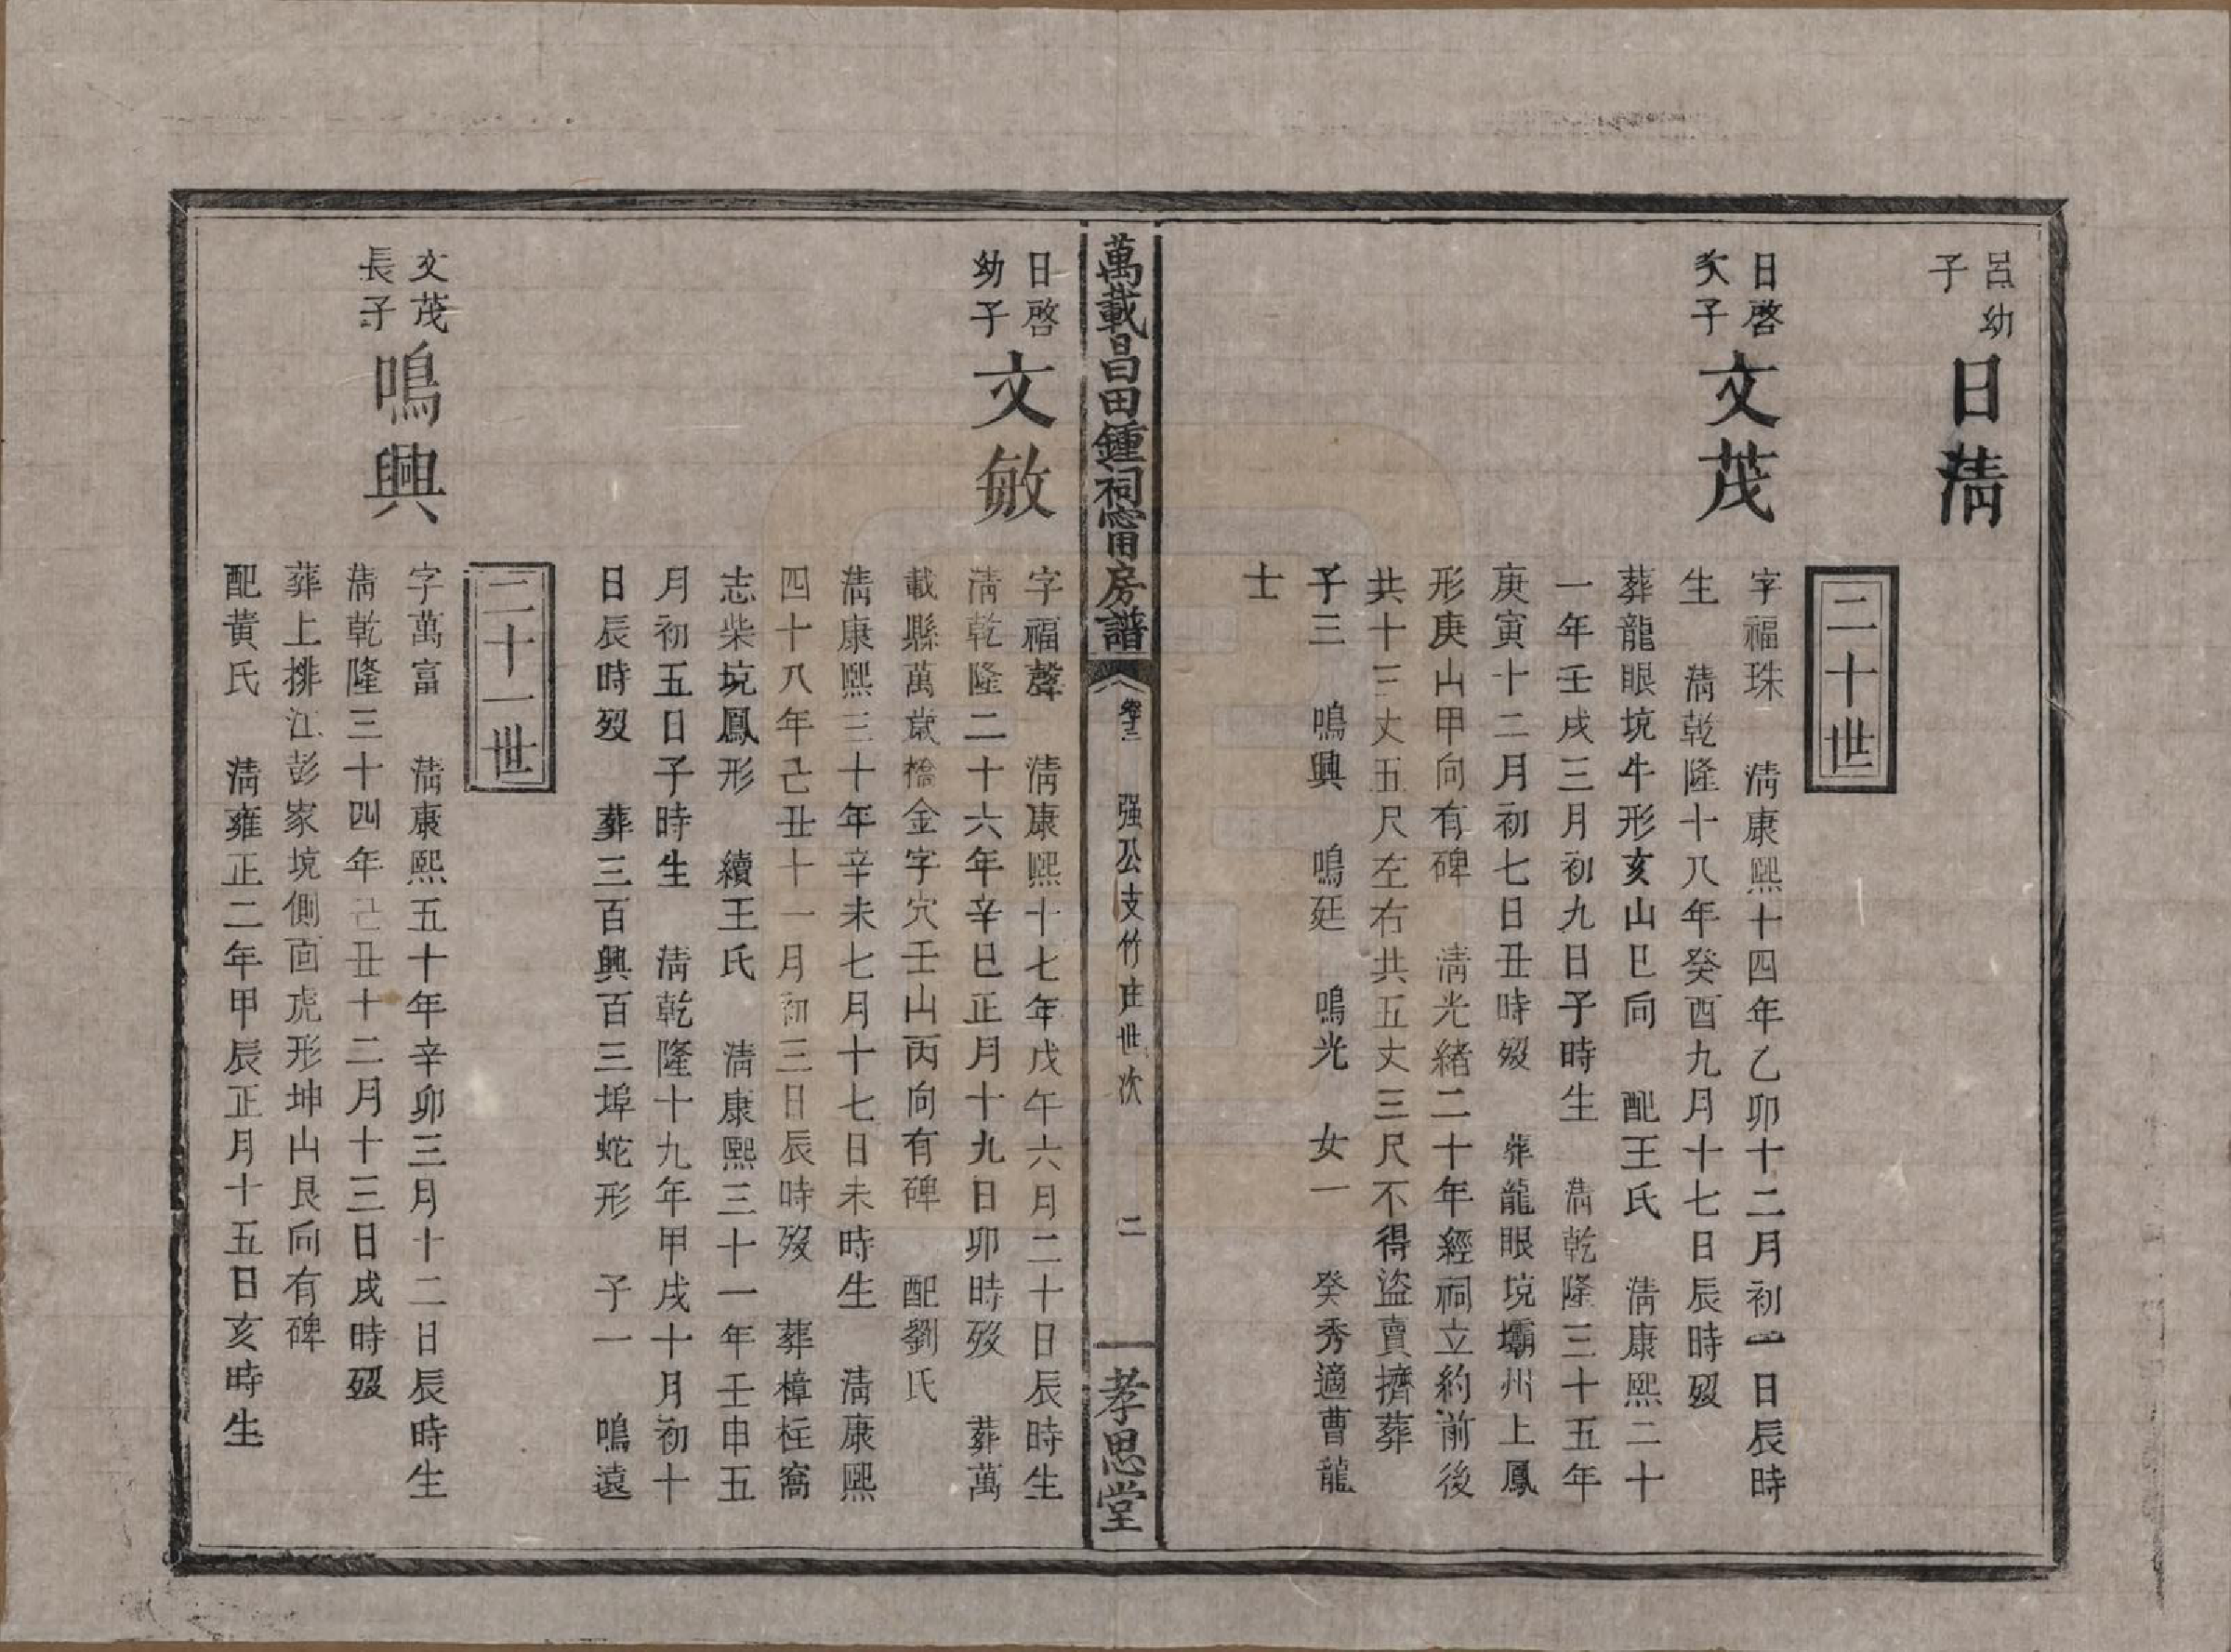 呂幼
子
日淸
二十世
日啓
次子
文茂
字福珠　淸康熙十四年乙卯十二月初一日辰時
生　淸乾隆十八年癸酉九月十七日辰時歿
葬龍眼坑牛形亥山巳向　配王氏　淸康熙二十
一年壬戌三月初九日子時生　淸乾隆三十五年
庚寅十二月初七日丑時歿　葬龍眼境壩州上鳳
形庚山甲向有碑　淸光緒二十年經祠立約前後
共十三丈五尺左右共五丈三尺不得盜賣擠葬
子三　鳴興　鳴廷　鳴光　女一　癸秀適曹龍
士
萬載昌田鍾祠甯用房譜
卷十三
强公支竹庄世次
二
孝思堂
日啓
幼子
文敏
字福聲　淸康熙十七年戊午六月二十日辰時生
淸乾隆二十六年辛巳正月十九日卯時歿　葬萬
載縣萬歲橋金字穴壬山丙向有碑　配劉氏
淸康熙三十年辛未七月十七日未時生　淸康熙
四十八年己丑十一月初三日辰時歿　葬樟枉窩
志柴境鳳形　續王氏　淸康熙三十一年壬申五
月初五日子時生　淸乾隆十九年甲戌十月初十
日辰時歿　葬三百興百三埠蛇形　子一　鳴遠
二十一世
文茂
長子
鳴興
字萬富　淸康熙五十年辛卯三月十二日辰時生
淸乾隆三十四年己丑十二月十三日戌時歿
葬上排江彭家境側面虎形坤山艮向有碑
配黃氏　淸雍正二年甲辰正月十五日亥時生